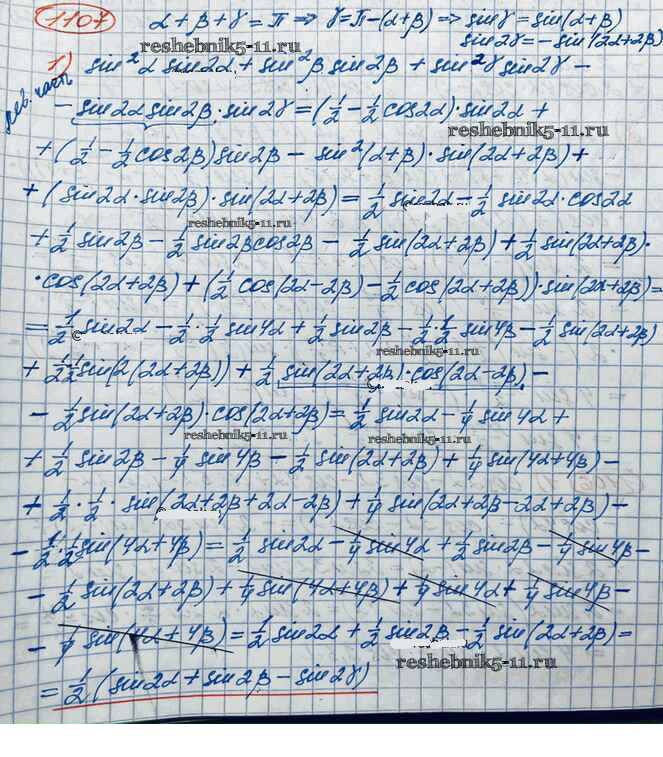 1107 α + β + γ = π ⇒ γ = π – (α + β) ⇒ sin γ = sin(α + β)
sin 2γ = – sin(2α + 2β)
reshebnik5-11.ru
1) sin²α sin2α + sin²β sin2β + sin²γ sin2γ –
– sin2α sin2β · sin2γ = (1/2 – 1/2 cos2α) · sin2α +
reshebnik5-11.ru
+ (1/2 – 1/2 cos2β) sin2β – sin²(α + β) · sin(2α + 2β) +
+ (sin2α · sin2β) · sin(2α + 2β) = 1/2 sin2α – 1/2 sin2α · cos2α
reshebnik5-11.ru
+ 1/2 sin2β – 1/2 sin2β cos2β – 1/2 sin(2α + 2β) + 1/2 sin(2α + 2β) ·
· cos(2α + 2β) + (1/2 cos(2α – 2β) – 1/2 cos(2α + 2β)) · sin(2α + 2β) =
= 1/2 sin2α – 1/2 · 1/2 sin4α + 1/2 sin2β – 1/2 · 1/2 sin4β – 1/2 sin(2α + 2β)
reshebnik5-11.ru
+ 1/2 · 1/2 sin(2(2α + 2β)) + 1/2 sin(2α + 2β) · cos(2α – 2β) –
– 1/2 sin(2α + 2β) · cos(2α + 2β) = 1/2 sin2α – 1/4 sin4α +
reshebnik5-11.ru
+ 1/2 sin2β – 1/4 sin4β – 1/2 sin(2α + 2β) + 1/4 sin(4α + 4β) –
+ 1/2 · 1/2 · sin(2α + 2β + 2α – 2β) + 1/4 sin(2α + 2β – 2α + 2β) –
reshebnik5-11.ru
– 1/2 · 1/2 sin(4α + 4β) = 1/2 sin2α – 1/4 sin4α + 1/2 sin2β – 1/4 sin4β –
– 1/2 sin(2α + 2β) + 1/4 sin(4α + 4β) + 1/4 sin4α + 1/4 sin4β –
– 1/4 sin(4α + 4β) = 1/2 sin2α + 1/2 sin2β – 1/2 sin(2α + 2β) =
reshebnik5-11.ru
= 1/2 (sin2α + sin2β – sin2γ)
reshebnik5-11.ru